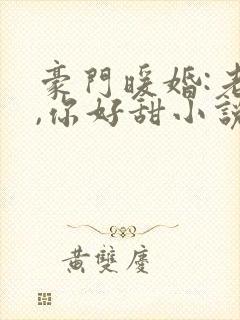 豪門暖婚:老
,你好甜小說
黃雙慶